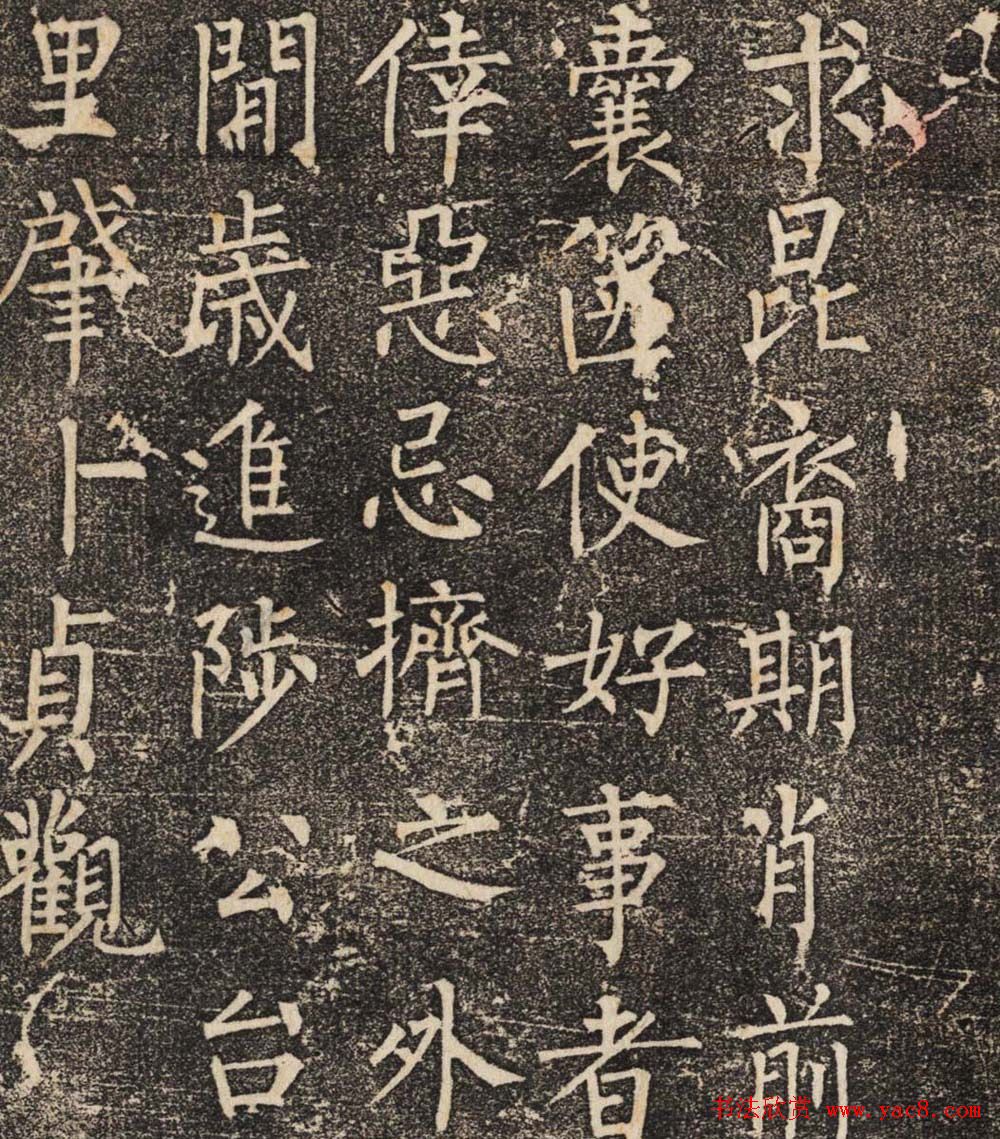 求昆裔期肖前
囊箧使好事者
倖惡忌擠之外
閒歲進陟公台
里肈卜貞觀
书法欣赏 www.yac8.com